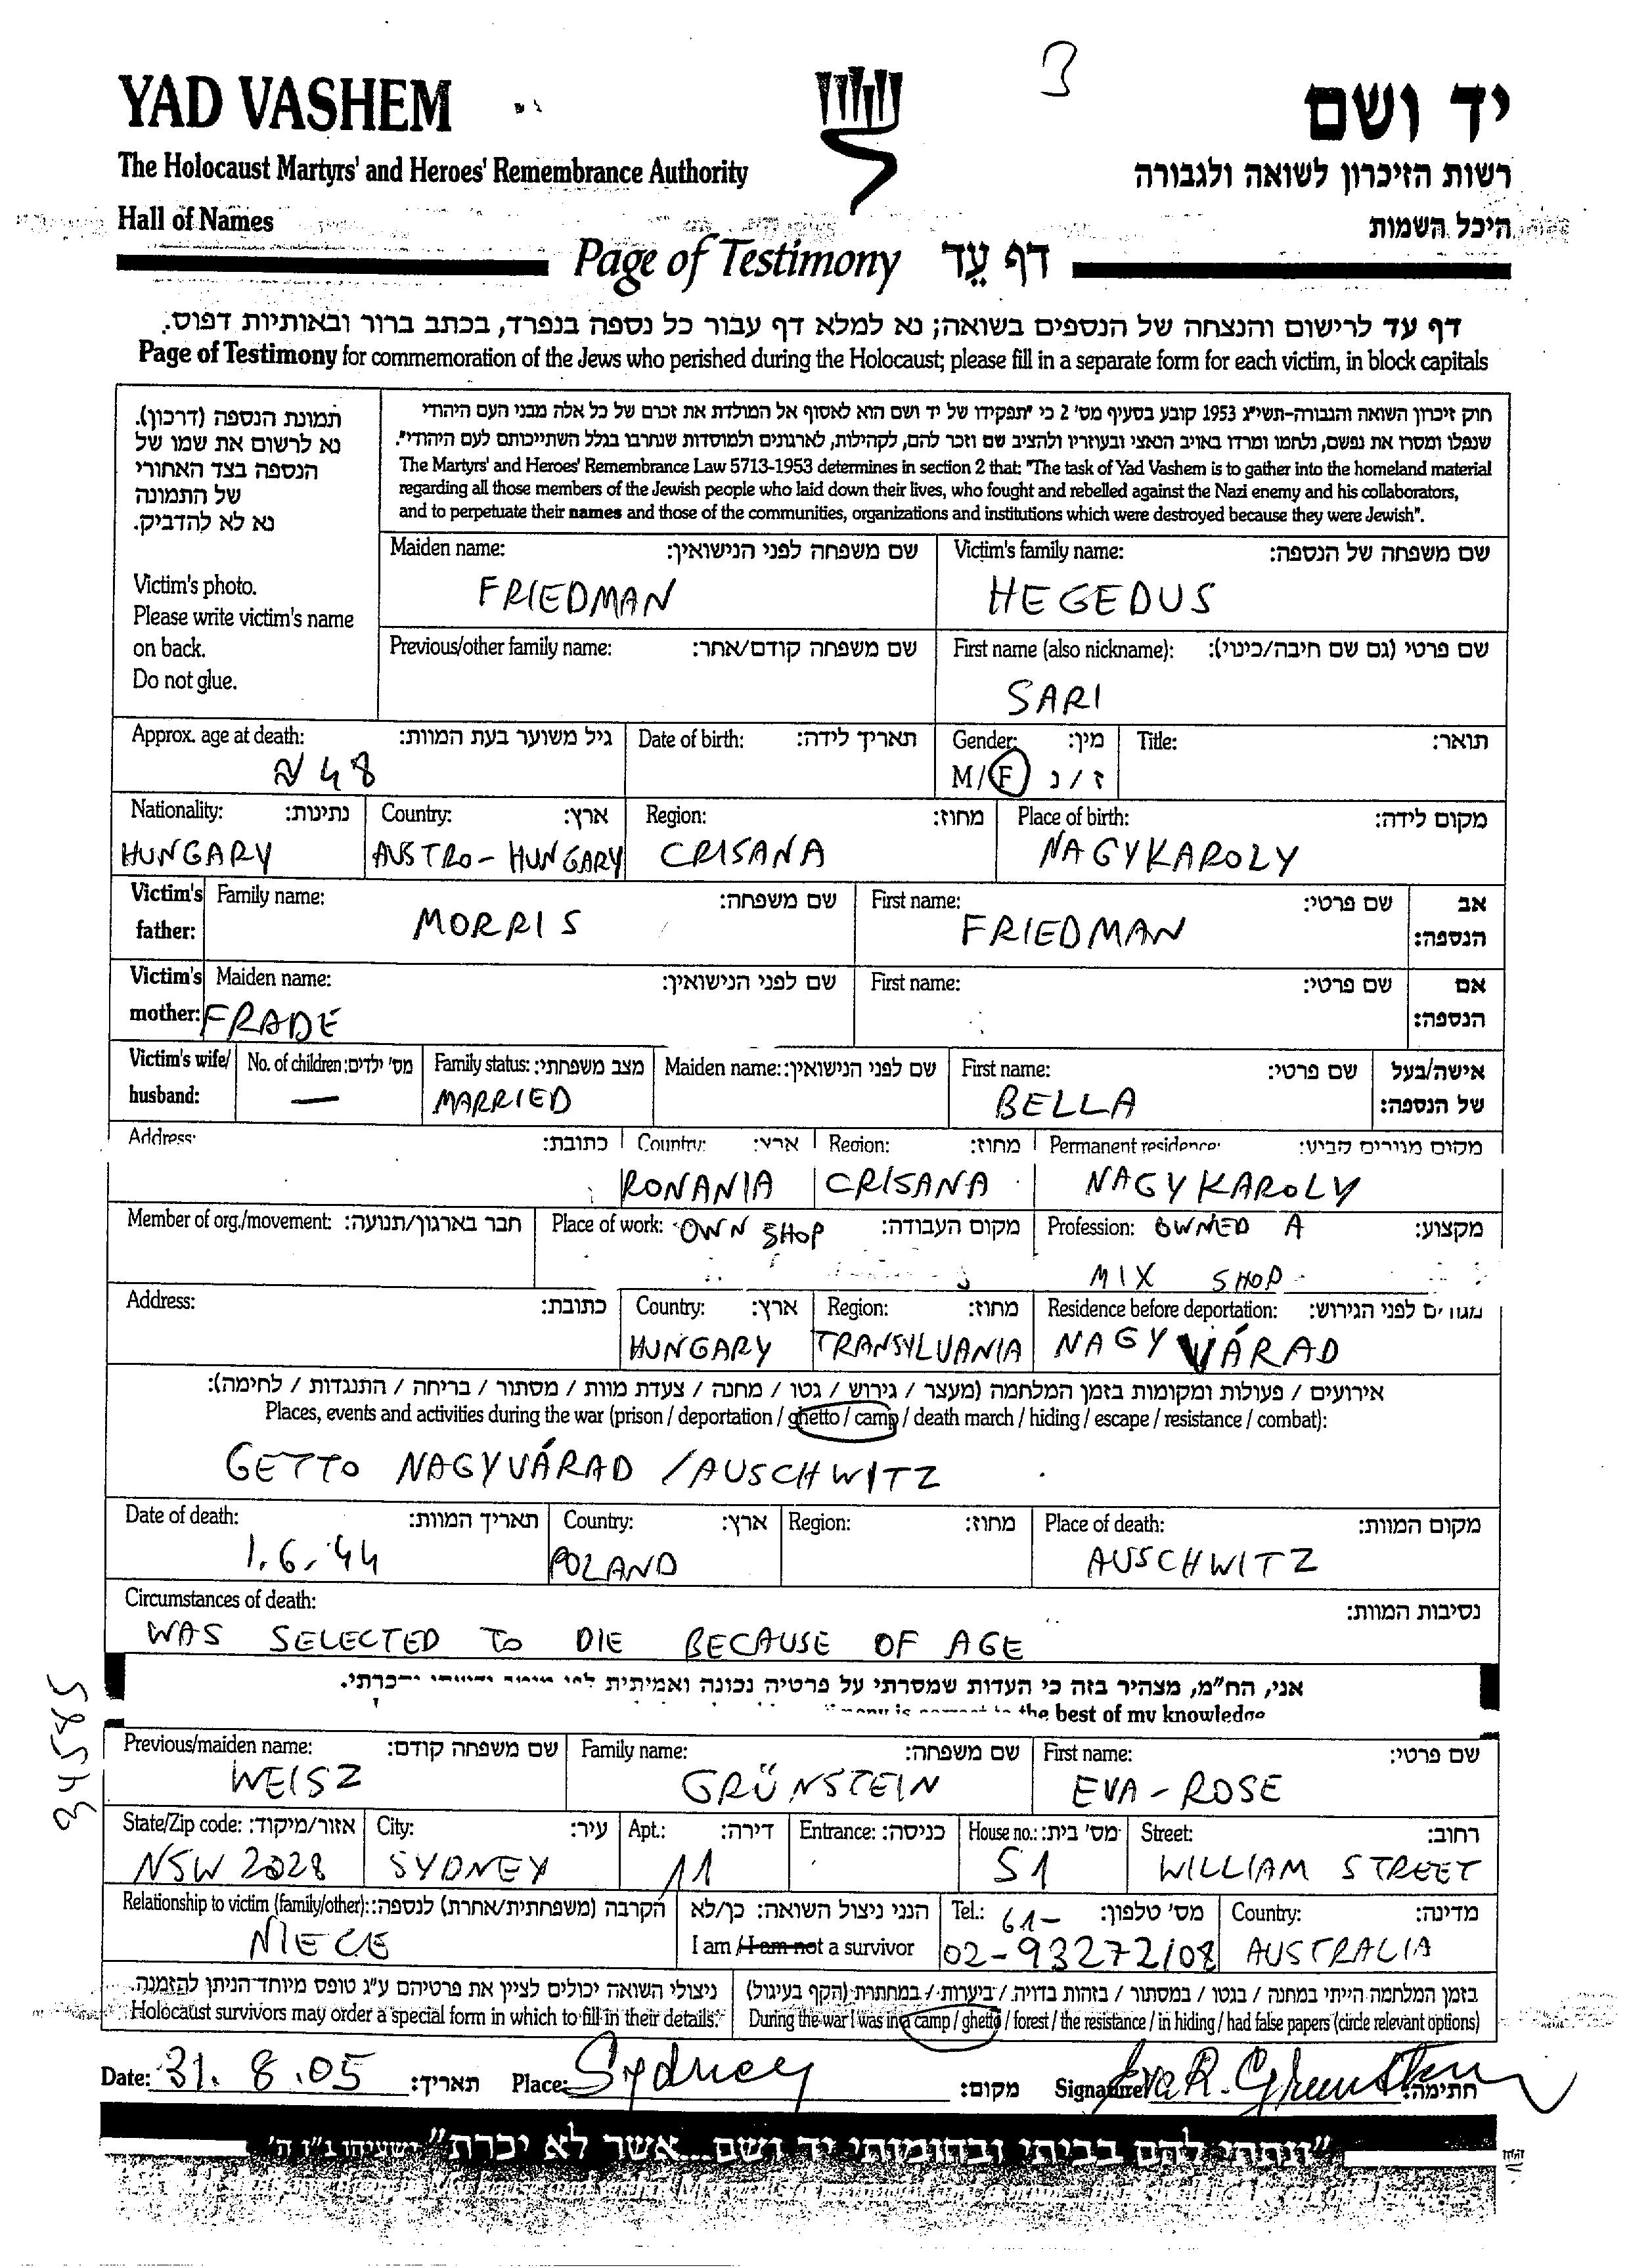 3
YAD VASHEM
יד ושם
The Holocaust Martyrs' and Heroes' Remembrance Authority
רשות הזיכרון לשואה ולגבורה
Hall of Names
היכל השמות
Page of Testimony דף עֵד
דף עד לרישום והנצחה של הנספים בשואה; נא למלא דף עבור כל נספה בנפרד, בכתב ברור ובאותיות דפוס.
Page of Testimony for commemoration of the Jews who perished during the Holocaust; please fill in a separate form for each victim, in block capitals
תמונת הנספה (דרכון).
נא לרשום את שמו של
הנספה בצד האחורי
של התמונה
נא לא להדביק.
Victim's photo.
Please write victim's name
on back.
Do not glue.
חוק זיכרון השואה והגבורה-תשי"ג 1953 קובע בסעיף מס' 2 כי "תפקידו של יד ושם הוא לאסוף אל המולדת את זכרם של כל אלה מבני העם היהודי
שנפלו ומסרו את נפשם, נלחמו ומרדו באויב הנאצי ובעוזריו ולהציב שם וזכר להם, לקהילות, לארגונים ולמוסדות שנחרבו בגלל השתייכותם לעם היהודי".
The Martyrs' and Heroes' Remembrance Law 5713-1953 determines in section 2 that: "The task of Yad Vashem is to gather into the homeland material
regarding all those members of the Jewish people who laid down their lives, who fought and rebelled against the Nazi enemy and his collaborators,
and to perpetuate their names and those of the communities, organizations and institutions which were destroyed because they were Jewish".
Maiden name: שם משפחה לפני הנישואין: Victim's family name: שם משפחה של הנספה:
FRIEDMAN HEGEDUS
Previous/other family name: שם משפחה קודם/אחר: First name (also nickname): שם פרטי (גם שם חיבה/כינוי):
SARI
Approx. age at death: גיל משוער בעת המוות: Date of birth: תאריך לידה: Gender: מין: Title: תואר:
~ 48 M/F ז/נ
Nationality: נתינות: Country: ארץ: Region: מחוז: Place of birth: מקום לידה:
HUNGARY AUSTRO-HUNGARY CRISANA NAGYKAROLY
Victim's father: Family name: שם משפחה: First name: שם פרטי: אב הנספה:
MORRIS FRIEDMAN
Victim's mother: Maiden name: שם לפני הנישואין: First name: שם פרטי: אם הנספה:
FRADE
Victim's wife/ husband: No. of children: מס' ילדים: Family status: מצב משפחתי: Maiden name: שם לפני הנישואין: First name: שם פרטי: אישה/בעל של הנספה:
— MARRIED BELLA
Address: כתובת: Country: ארץ: Region: מחוז: Permanent residence: מקום מגורים קבוע:
RONANIA CRISANA NAGYKAROLY
Member of org./movement: חבר בארגון/תנועה: Place of work: OWN SHOP מקום העבודה: Profession: OWNED A מקצוע:
MIX SHOP
Address: כתובת: Country: ארץ: Region: מחוז: Residence before deportation: מגורים לפני הגירוש:
HUNGARY TRANSYLVANIA NAGY VÁRAD
אירועים / פעולות ומקומות בזמן המלחמה (מעצר / גירוש / גטו / מחנה / צעדת מוות / מסתור / בריחה / התנגדות / לחימה):
Places, events and activities during the war (prison / deportation / ghetto / camp / death march / hiding / escape / resistance / combat):
GETTO NAGYVÁRAD /AUSCHWITZ
Date of death: תאריך המוות: Country: ארץ: Region: מחוז: Place of death: מקום המוות:
1.6.'44 POLAND AUSCHWITZ
Circumstances of death: נסיבות המוות:
WAS SELECTED TO DIE BECAUSE OF AGE
אני, הח"מ, מצהיר בזה כי העדות שמסרתי על פרטיה נכונה ואמיתית לפי
the best of my knowledge
Previous/maiden name: שם משפחה קודם: Family name: שם משפחה: First name: שם פרטי:
WEISZ GRÜNSTEIN EVA-ROSE
State/Zip code: אזור/מיקוד: City: עיר: Apt.: דירה: Entrance: כניסה: House no.: מס' בית: Street: רחוב:
NSW 2028 SYDNEY 11 51 WILLIAM STREET
Relationship to victim (family/other): הקרבה (משפחתית/אחרת) לנספה: הנני ניצול השואה: כן/לא Tel.: 61- מס' טלפון: Country: מדינה:
NIECE I am / I am not a survivor 02-93272108 AUSTRALIA
ניצולי השואה יכולים לציין את פרטיהם ע"ג טופס מיוחד הניתן להזמנה. בזמן המלחמה הייתי במחנה / בגטו / במסתור / בזהות בדויה / ביערות / במחתרת (הקף בעיגול)
Holocaust survivors may order a special form in which to fill in their details. During the war I was in a camp / ghetto / forest / the resistance / in hiding / had false papers (circle relevant options)
Date: 31.8.05 תאריך: Place: Sydney מקום: Signature: Eva R. Grunstein חתימה:
"ונתתי להם בביתי ובחומותי יד ושם...אשר לא יכרת" ישעיהו נ"ו ה'